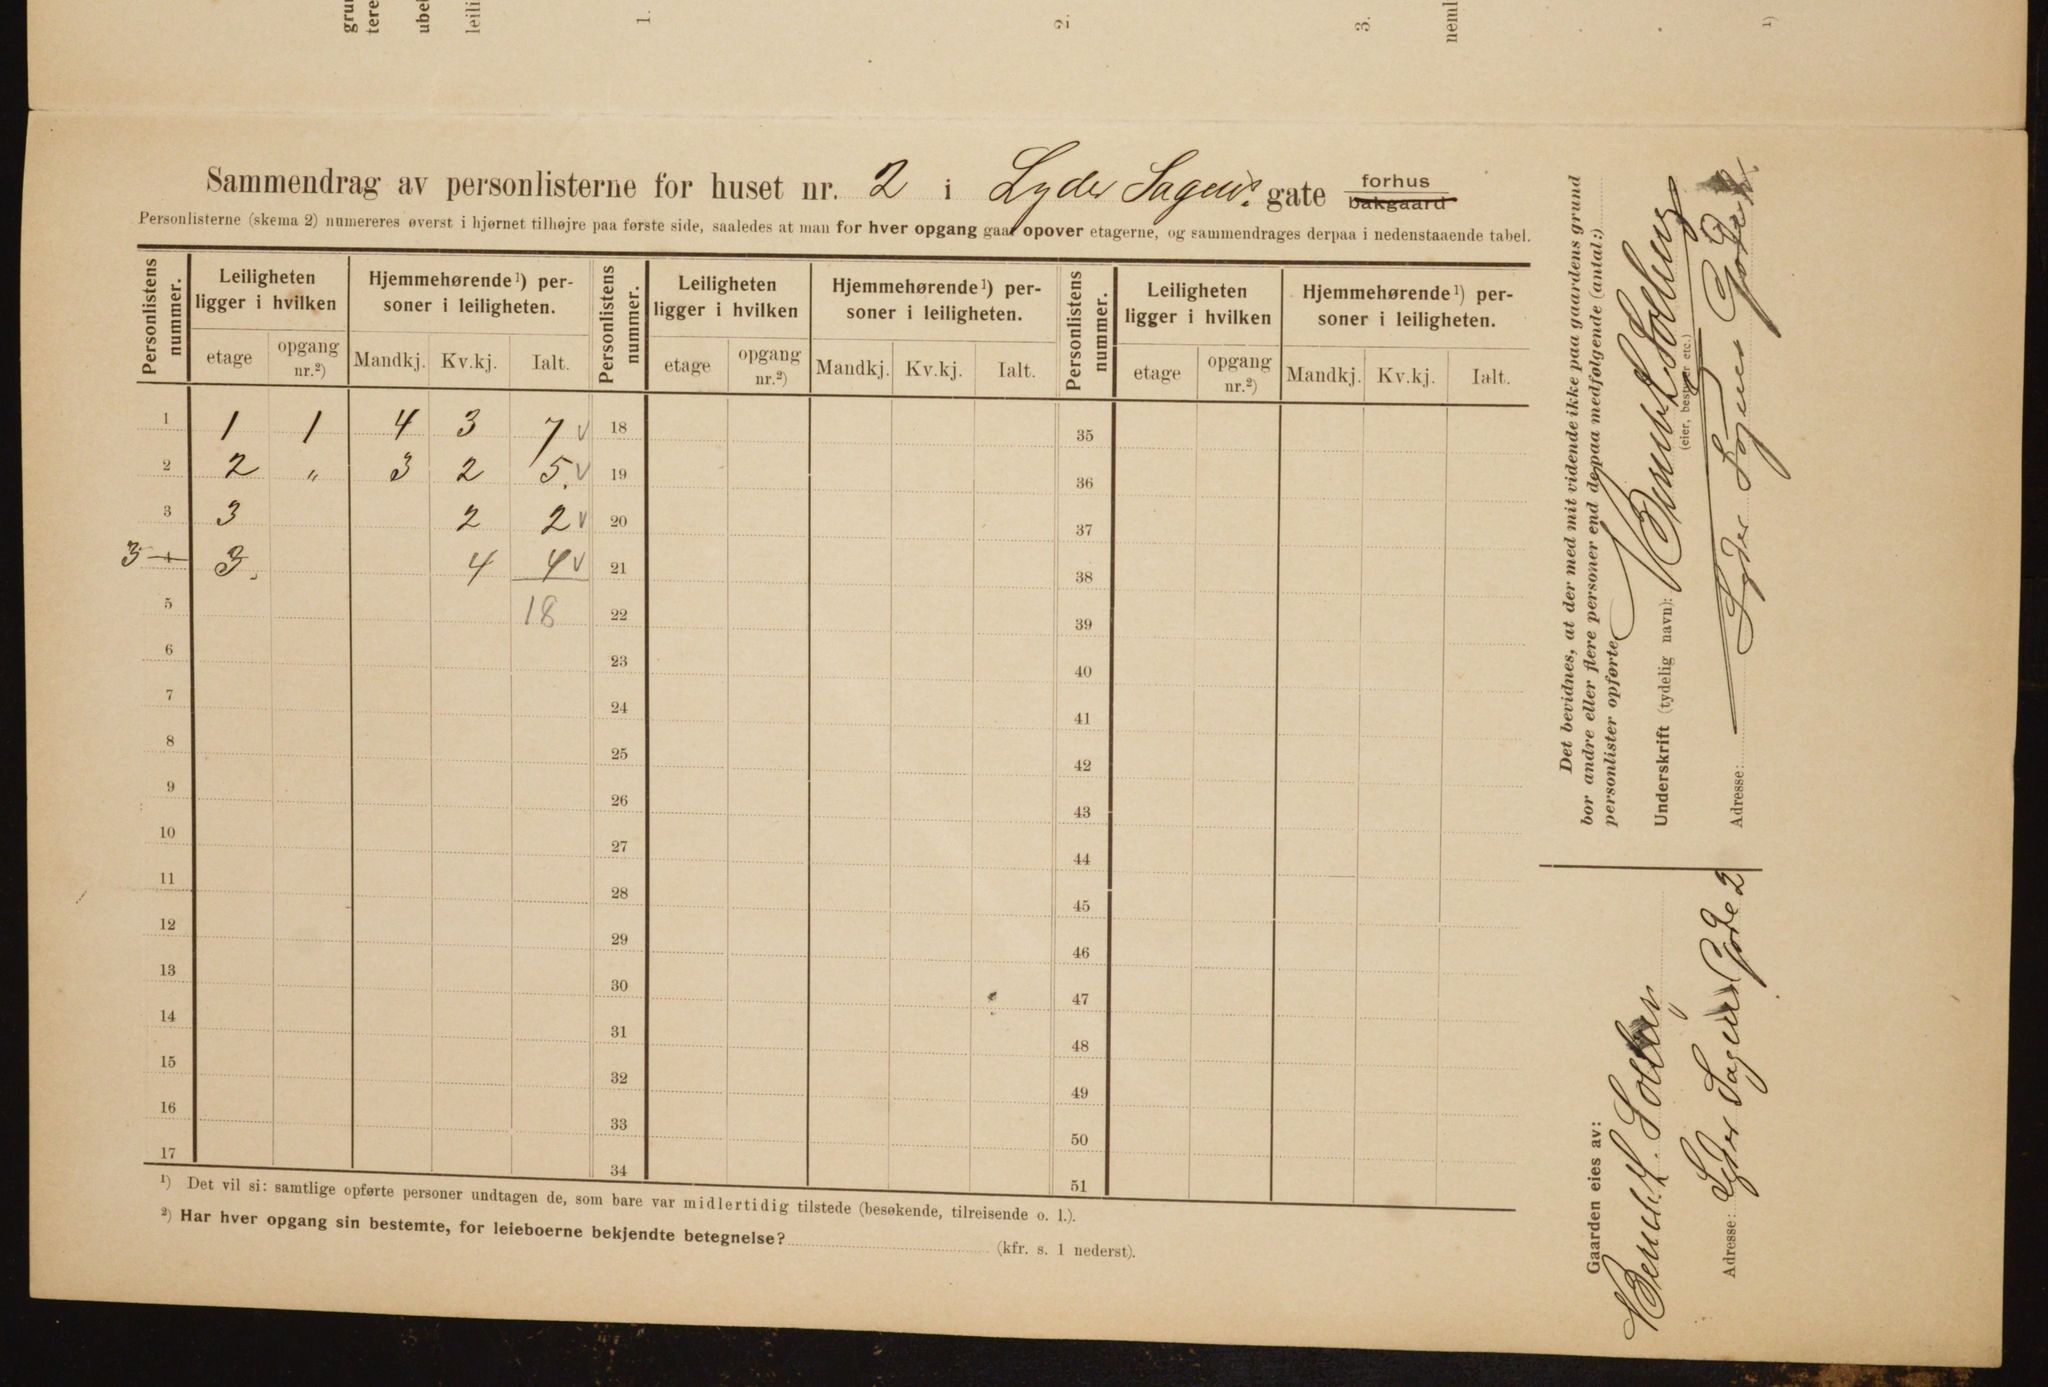 gru
tere
ubel
leili
1.
2.
3.
neml
1)
Sammendrag av personlisterne for huset nr. 2 i Lyder Sagens gate forhus bakgaard
Personlisterne (skema 2) numereres øverst i hjørnet tilhøjre paa første side, saaledes at man for hver opgang gaar opover etagerne, og sammendrages derpaa i nedenstaaende tabel.
Personlistens nummer. Leiligheten ligger i hvilken Hjemmehørende¹) personer i leiligheten. Personlistens nummer. Leiligheten ligger i hvilken Hjemmehørende¹) personer i leiligheten. Personlistens nummer. Leiligheten ligger i hvilken Hjemmehørende¹) personer i leiligheten.
etage opgang nr.²) Mandkj. Kv.kj. Ialt. etage opgang nr.²) Mandkj. Kv.kj. Ialt. etage opgang nr.²) Mandkj. Kv.kj. Ialt.
1 1 1 4 3 7 v 18 35
2 2 " 3 2 5. v 19 36
3 3 2 2 v 20 37
3 4 3. 4 4 v 21 38
5 18 22 39
6 23 40
7 24 41
8 25 42
9 26 43
10 27 44
11 28 45
12 29 46
13 30 47
14 31 48
15 32 49
16 33 50
17 34 51
¹) Det vil si: samtlige opførte personer undtagen de, som bare var midlertidig tilstede (besøkende, tilreisende o. l.).
²) Har hver opgang sin bestemte, for leieboerne bekjendte betegnelse? (kfr. s. 1 nederst).
Det bevidnes, at der med mit vidende ikke paa gaardens grund
bor andre eller flere personer end de paa medfølgende (antal:)
personlister opførte
Underskrift (tydelig navn): Berent
(eier, bestyrer etc.)
Adresse: Lyder Sagens Gate 2
Gaarden eies av:
Berent
Adresse: Lyder Sagens Gate 2